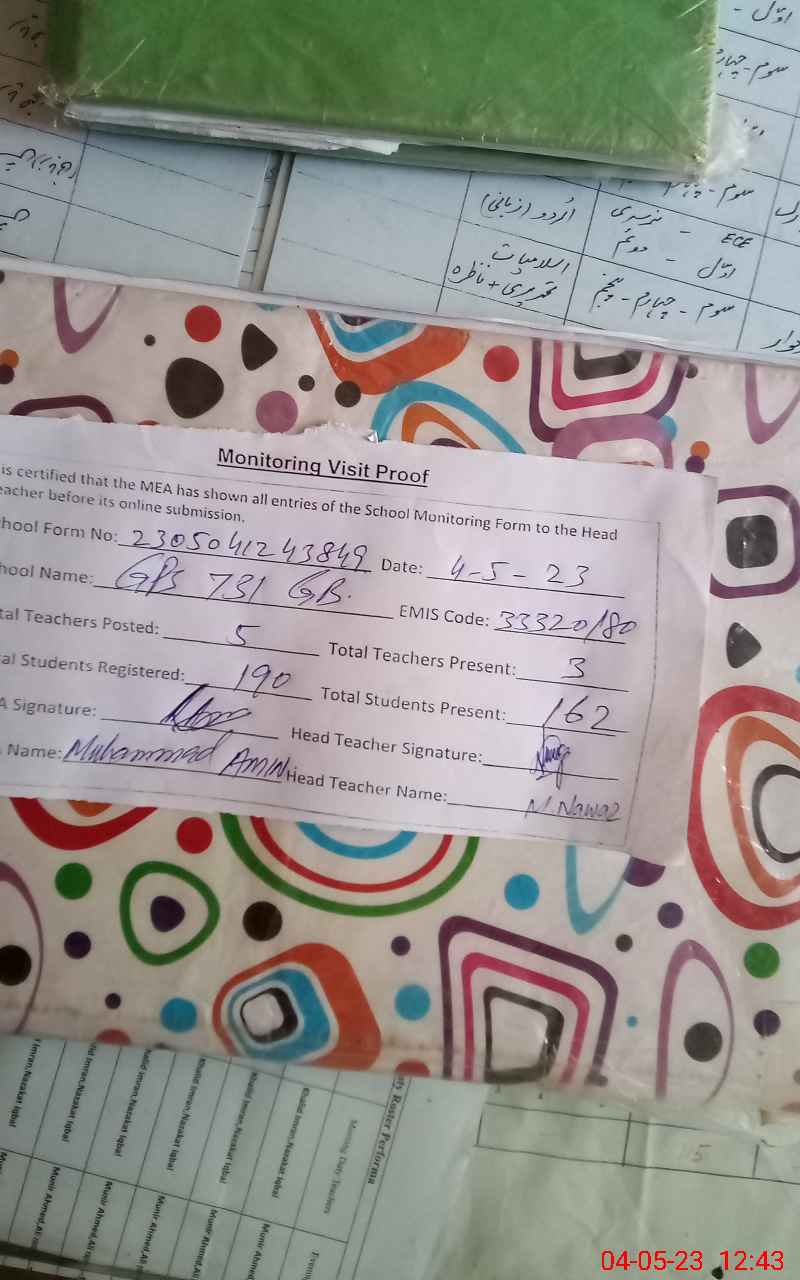 اوّل -
سوم - چہارم
اُردو (زبانی)
ECE - نرسری
اوّل - دوئم
اسلامیات
سوم - چہارم - پنجم
تحریری + ناظرہ
Monitoring Visit Proof
is certified that the MEA has shown all entries of the School Monitoring Form to the Head
eacher before its online submission.
hool Form No: 2305041243849 Date: 4-5-23
hool Name: GPS 731 GB. EMIS Code: 33320180
tal Teachers Posted: 5 Total Teachers Present: 3
al Students Registered: 190 Total Students Present: 162
A Signature: Head Teacher Signature:
Name: Muhammad Amin Head Teacher Name: M. Nawaz
ty Roster Performa
Morning Duty Teachers
Khalid Imran,Nazakat Iqbal
Khalid Imran,Nazakat Iqbal
Khalid Imran,Nazakat Iqbal
halid Imran,Nazakat Iqbal
lid Imran,Nazakat Iqbal
Imran,Nazakat Iqbal
Evenin
Munir Ahmed
Munir Ahmed,Ali
Munir Ahmed,Ali
Munir Ahmed,Ali
15
04-05-23 12:43